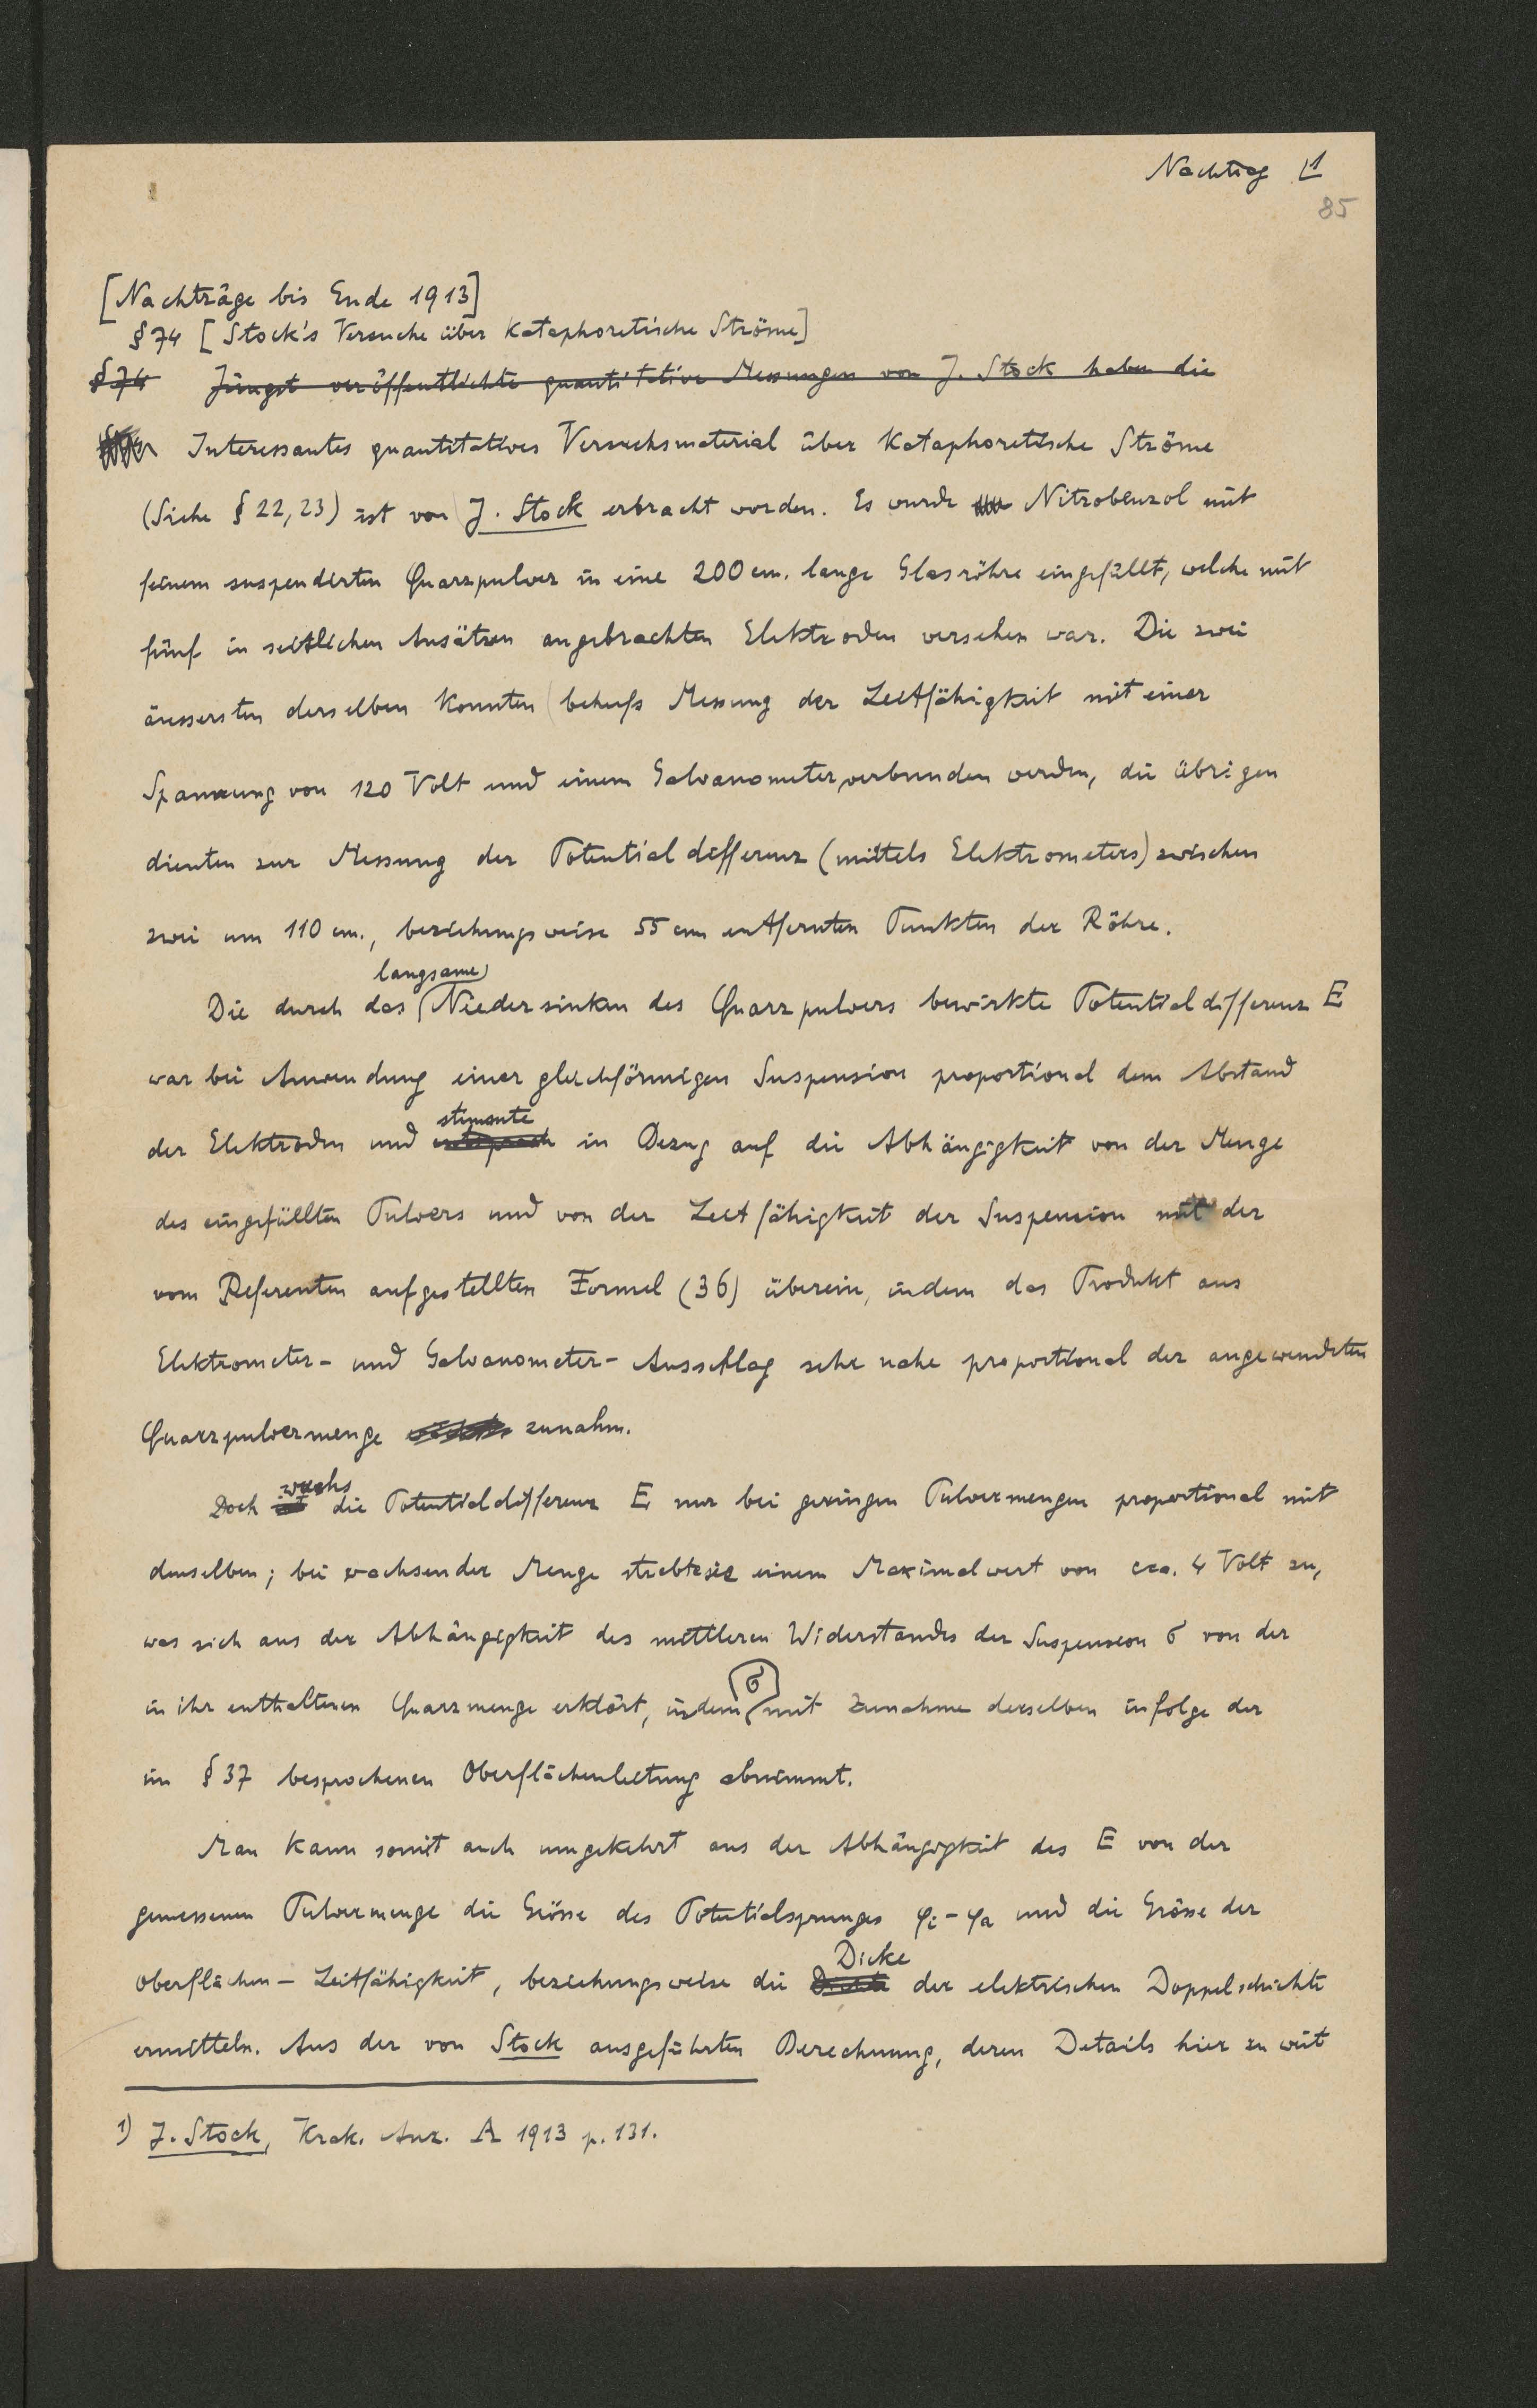 Nachtrag 1
85
[Nachträge bis Ende 1913]
§74 [Stock's Versuche über kataphoretische Ströme]
§74 Jüngst veröffentlichte quantitative Messungen von J. Stock haben die
Interessantes quantitatives Versuchsmaterial über kataphoretische Ströme
(Siehe § 22, 23) ist von J. Stock erbracht worden. Es wurde Nitrobenzol mit
feinem suspendirten Quarzpulver in eine 200 cm. lange Glasröhre eingefüllt, welche mit
fünf in seitlichen Ansätzen angebrachten Elektroden versehen war. Die zwei
äussersten derselben konnten (behufs Messung der Leitfähigkeit mit einer
Spannung von 120 Volt und einem Galvanometer verbunden werden, die übrigen
dienten zur Messung der Potentialdifferenz (mittels Elektrometers) zwischen
zwei um 110 cm., beziehungsweise 55 cm entfernten Punkten der Röhre.
langsame
Die durch das Niedersinken des Quarzpulvers bewirkte Potentialdifferenz E
war bei Anwendung einer gleichförmigen Suspension proportional dem Abstand
stimmte
der Elektroden und entsprach in Bezug auf die Abhängigkeit von der Menge
des eingefüllten Pulvers und von der Leitfähigkeit der Suspension mit der
vom Referenten aufgestellten Formel (36) überein, indem das Produkt aus
Elektrometer- und Galvanometer- Ausschlag sehr nahe proportional der angewendeten
Quarzpulvermenge zunahm.
wuchs
Doch ist die Potentialdifferenz E nur bei geringen Pulvermengen proportional mit
denselben; bei wachsender Menge strebte sie einem Maximalwert von cca. 4 Volt zu,
was sich aus der Abhängigkeit des mittleren Widerstandes der Suspension σ von der
σ
in ihr enthaltenen Quarzmenge erklärt, indem mit Zunahme derselben infolge der
im § 37 besprochenen Oberflächenleitung abnimmt.
Man kann somit auch umgekehrt aus der Abhängigkeit des E von der
gemessenen Pulvermenge die Grösse des Potentialsprunges φi - φa und die Grösse der
Dicke
Oberflächen- Leitfähigkeit, beziehungsweise die der elektrischen Doppelschichte
ermitteln. Aus der von Stock ausgeführten Berechnung, deren Details hier zu weit
1) J. Stock, Krak. Anz. A 1913 p. 131.